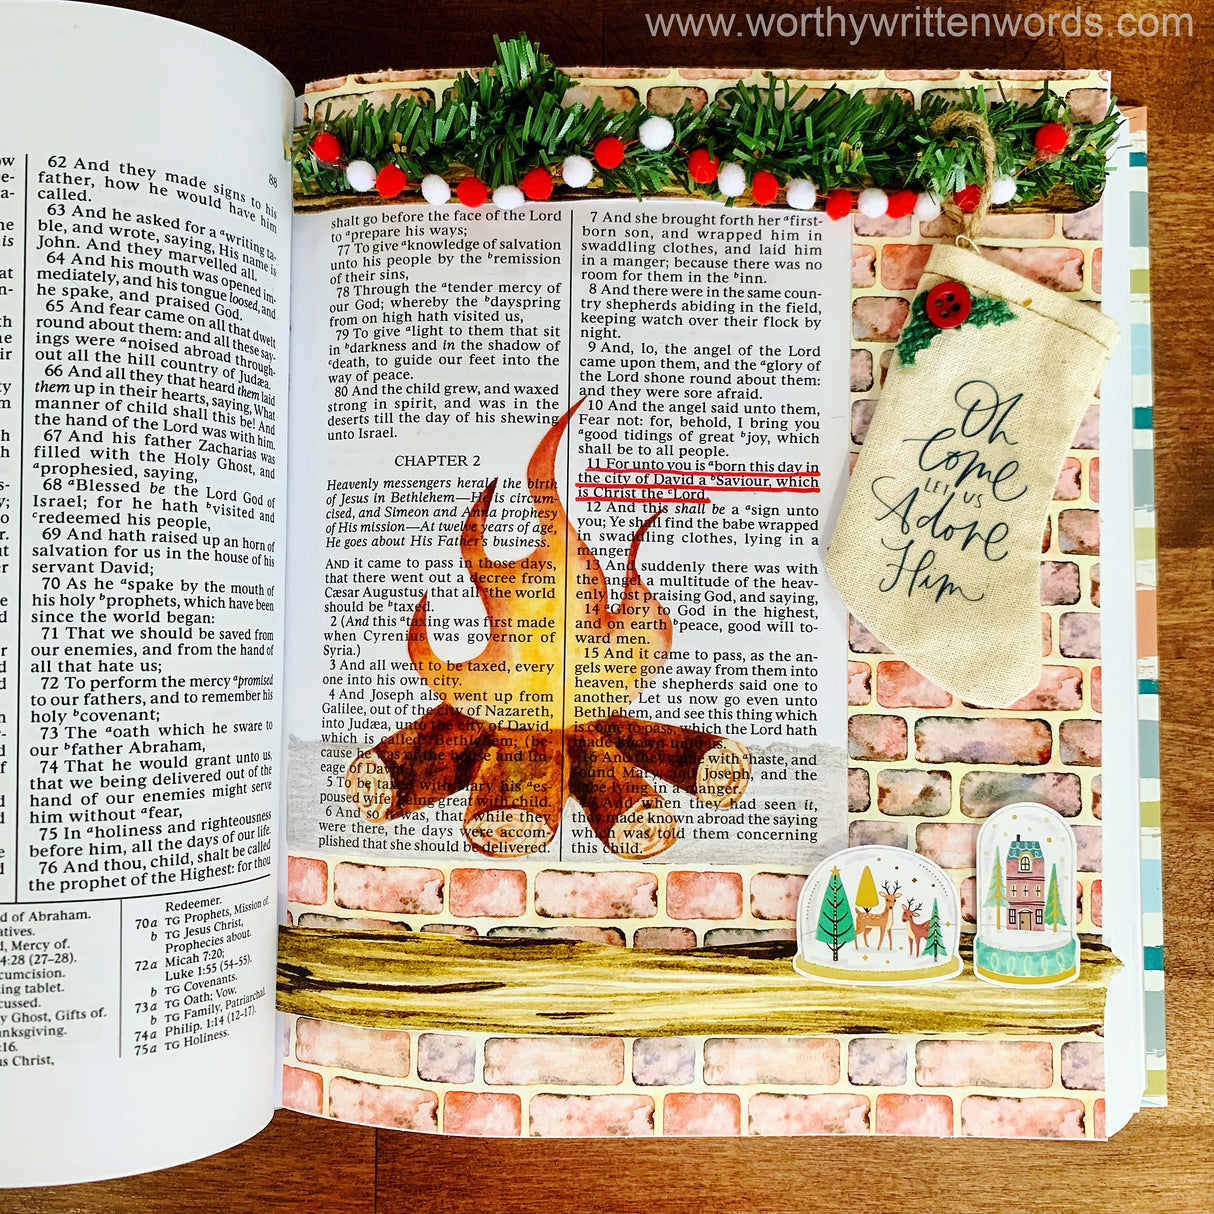 www.worthywrittenwords.com
88
62 And they made signs to his
father, how he would have him
called.
63 And he asked for a ᵃwriting ta-
ble, and wrote, saying, His name is
John. And they marvelled all.
64 And his mouth was opened im-
mediately, and his tongue loosed, and
he spake, and praised God.
65 And fear came on all that dwelt
round about them: and all these say-
ings were ᵃnoised abroad through-
out all the hill country of Judæa.
66 And all they that heard them laid
them up in their hearts, saying, What
manner of child shall this be! And
the hand of the Lord was with him.
67 And his father Zacharias was
filled with the Holy Ghost, and
ᵃprophesied, saying,
68 ᵃBlessed be the Lord God of
Israel; for he hath ᵇvisited and
ᶜredeemed his people,
69 And hath raised up an horn of
salvation for us in the house of his
servant David;
70 As he ᵃspake by the mouth of
his holy ᵇprophets, which have been
since the world began:
71 That we should be saved from
our enemies, and from the hand of
all that hate us;
72 To perform the mercy ᵃpromised
to our fathers, and to remember his
holy ᵇcovenant;
73 The ᵃoath which he sware to
our ᵇfather Abraham,
74 That he would grant unto us,
that we being delivered out of the
hand of our enemies might serve
him without ᵃfear,
75 In ᵃholiness and righteousness
before him, all the days of our life.
76 And thou, child, shalt be called
the prophet of the Highest: for thou
d of Abraham.
atives.
d, Mercy of.
4:28 (27–28).
cumcision.
ing tablet.
cussed.
y Ghost, Gifts of.
anksgiving.
:16.
us Christ,
Redeemer.
70a TG Prophets, Mission of.
b TG Jesus Christ,
Prophecies about.
72a Micah 7:20;
Luke 1:55 (54–55).
b TG Covenants.
73a TG Oath; Vow.
b TG Family, Patriarchal.
74a Philip. 1:14 (12–17).
75a TG Holiness.
shalt go before the face of the Lord
to ᵃprepare his ways;
77 To give ᵃknowledge of salvation
unto his people by the ᵇremission
of their sins,
78 Through the ᵃtender mercy of
our God; whereby the ᵇdayspring
from on high hath visited us,
79 To give ᵃlight to them that sit
in ᵇdarkness and in the shadow of
ᶜdeath, to guide our feet into the
way of peace.
80 And the child grew, and waxed
strong in spirit, and was in the
deserts till the day of his shewing
unto Israel.
CHAPTER 2
Heavenly messengers herald the birth
of Jesus in Bethlehem—He is circum-
cised, and Simeon and Anna prophesy
of His mission—At twelve years of age,
He goes about His Father's business.
AND it came to pass in those days,
that there went out a decree from
Cæsar Augustus, that all ᵃthe world
should be ᵇtaxed.
2 (And this ᵃtaxing was first made
when Cyrenius was governor of
Syria.)
3 And all went to be taxed, every
one into his own city.
4 And Joseph also went up from
Galilee, out of the city of Nazareth,
into Judæa, unto the city of David,
which is called Bethlehem; (be-
cause he was of the house and lin-
eage of David:)
5 To be taxed with Mary his ᵃes-
poused wife, being great with child.
6 And so it was, that, while they
were there, the days were accom-
plished that she should be delivered.
7 And she brought forth her ᵃfirst-
born son, and wrapped him in
swaddling clothes, and laid him
in a manger; because there was no
room for them in the ᵇinn.
8 And there were in the same coun-
try shepherds abiding in the field,
keeping watch over their flock by
night.
9 And, lo, the angel of the Lord
came upon them, and the ᵃglory of
the Lord shone round about them:
and they were sore afraid.
10 And the angel said unto them,
Fear not: for, behold, I bring you
ᵃgood tidings of great ᵇjoy, which
shall be to all people.
11 For unto you is ᵃborn this day in
the city of David a ᵇSaviour, which
is Christ the ᶜLord.
12 And this shall be a ᵃsign unto
you; Ye shall find the babe wrapped
in swaddling clothes, lying in a
manger.
13 And suddenly there was with
the angel a multitude of the heav-
enly host praising God, and saying,
14 ᵃGlory to God in the highest,
and on earth ᵇpeace, good will to-
ward men.
15 And it came to pass, as the an-
gels were gone away from them into
heaven, the shepherds said one to
another, Let us now go even unto
Bethlehem, and see this thing which
is come to pass, which the Lord hath
made known unto us.
16 And they came with ᵃhaste, and
found Mary, and Joseph, and the
babe lying in a manger.
17 And when they had seen it,
they made known abroad the saying
which was told them concerning
this child.
Oh
Come
LET US
Adore
Him